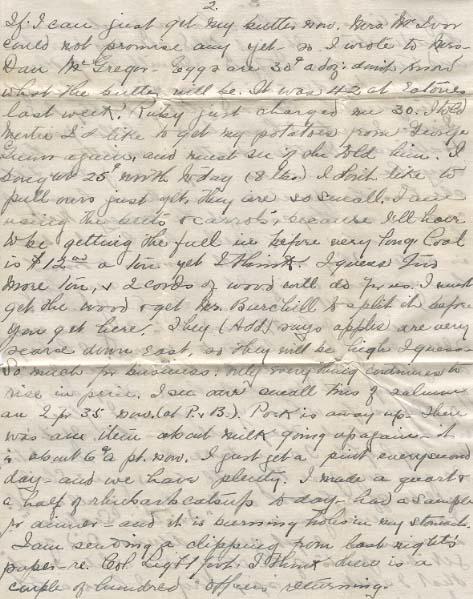 2.
If I can just get my butter now. Mrs McIvor
could not promise any yet - so I wrote to Mrs
Dan McGregor - Eggs are 30¢ a doz: don't know
what the butter will be. It was 42 at Eatons
last week! Ruby just charged me 30. I told
Mertie I'd like to get my potatoes from George
again, and must see if she told him. I
25¢ worth today (8 lbs) I don't like to
pull ours just yet, they are so small. I am
using the beets & carrots, because I'll have
to be getting the fuel in before very long. Coal
is $12.00 a ton yet I think. I guess
more ton, & 2 cords of wood will do for us. I must
get the wood & get Mr. Burchill to split it before
you get here. They (Add) says apples are very
scarce down East, so they will be high I guess.
So much for business: only everything continues to
rise in price. I see our small tins of salmon
are 2 for 35 now. (at P. & B.). Pork is away up - There
was an item about milk going up again - it
is about 6¢ a pt. now. I just get a pint every second
day - and we have plenty. I made a quart &
a half of rhubarb catsup to day - had a sample
for dinner - and it is burning holes in my stomach.
I am sending a clipping from last night's
paper - re. Col. Lightfoot. I think there is a
couple of hundred officers returning.